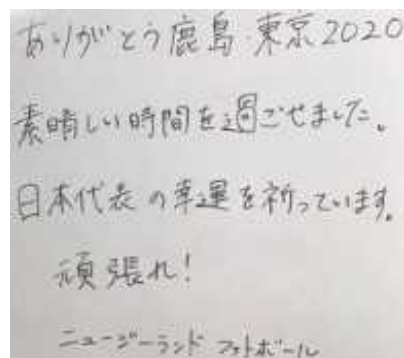 ありがとう鹿島・東京2020
素晴しい時間を過ごせました。
日本代表の幸運を祈っています。
頑張れ!
ニュージーランド フットボール